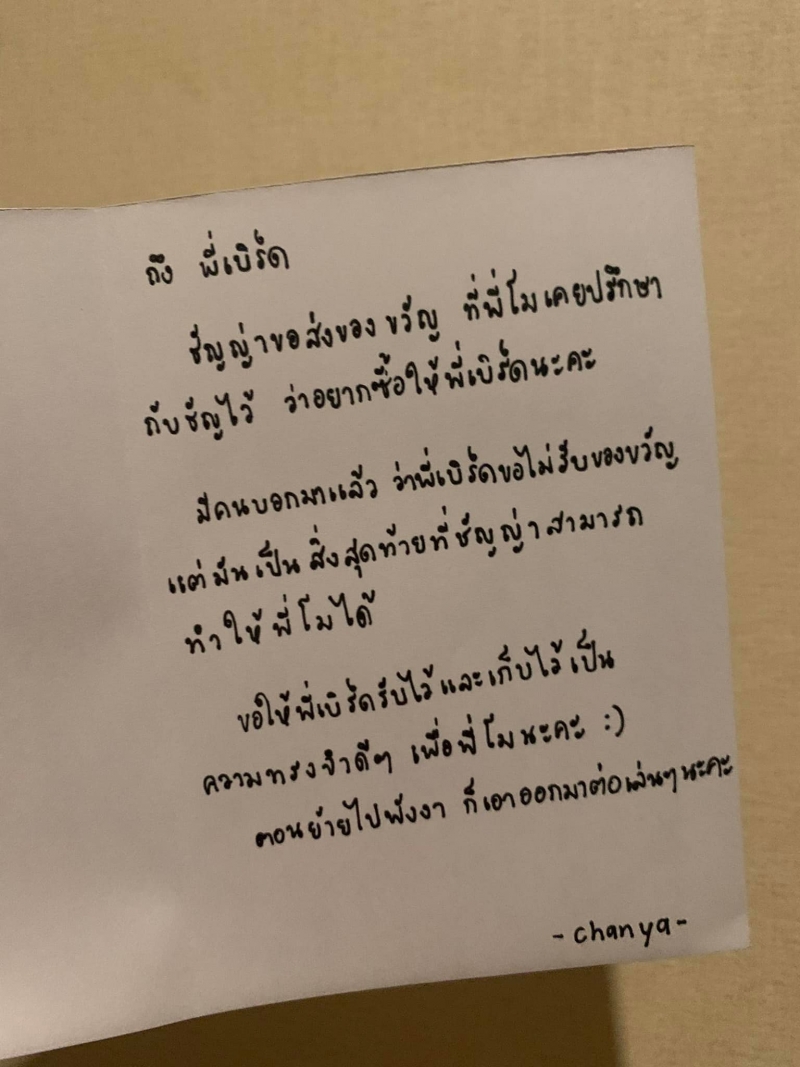 ถึง พี่เบิร์ด
ชัญญ่าขอส่งของขวัญ ที่พี่โมเคยปรึกษา
กับชัญไว้ ว่าอยากซื้อให้พี่เบิร์ดนะคะ
มีคนบอกมาแล้ว ว่าพี่เบิร์ดขอไม่รับของขวัญ
แต่มันเป็นสิ่งสุดท้ายที่ชัญญ่าสามารถ
ทำให้พี่โมได้
ขอให้พี่เบิร์ดรับไว้และเก็บไว้เป็น
ความทรงจำดีๆ เพื่อพี่โมนะคะ :)
ตอนย้ายไปพังงา ก็เอาออกมาต่อเล่นๆนะคะ
-chanya-